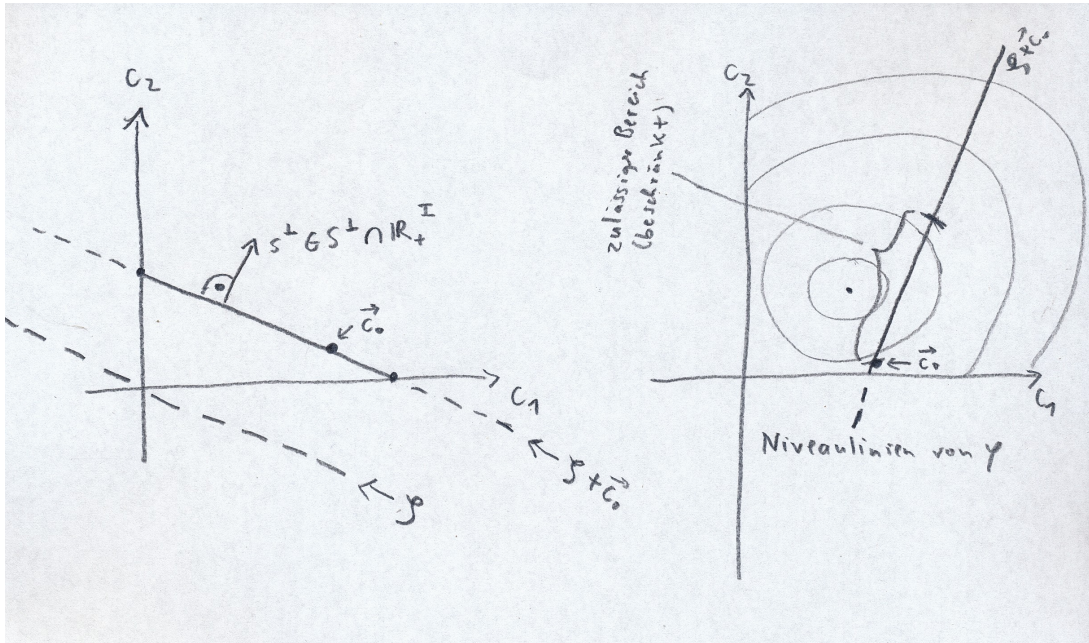 C₂
s^⊥ ∈ S^⊥ ∩ ℝ₊^I
c⃗₀
C₁
S + c⃗₀
S
zulässiger Bereich
(beschränkt)
C₂
S + c⃗₀
c⃗₀
C₁
Niveaulinien von φ